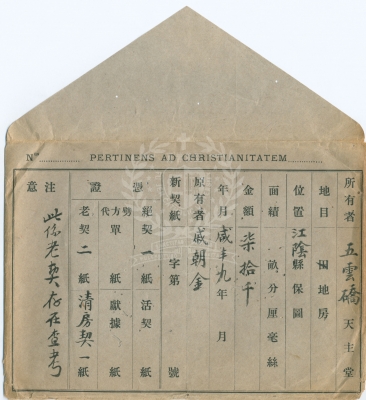 Nº PERTINENS AD CHRISTIANITATEM
所有者 五雲橋 天主堂
地目 地房
位置 江陰縣 保 圖
面積 畝分厘毫絲
金額 柒拾千
年月 咸豐九年 月
原有者 戚朝金
新契紙 字第 號
憑證 絕契 一 紙 活契 紙
方單 紙 獻據 紙
老契 二 紙 清房契一紙
注意 此係老契存在查考